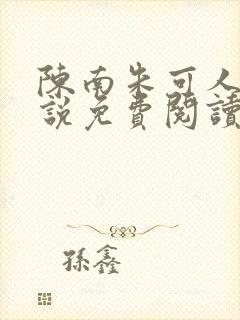 陳南朱可人
說免費閱讀
孫鑫